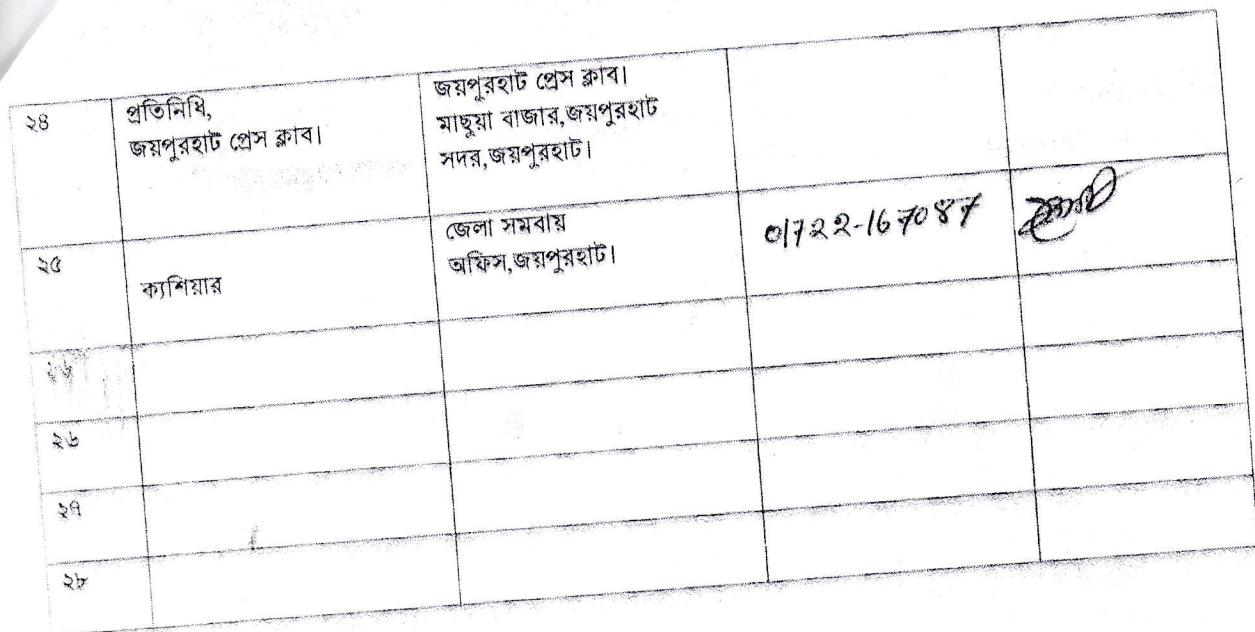 ২৪
প্রতিনিধি,
জয়পুরহাট প্রেস ক্লাব।
জয়পুরহাট প্রেস ক্লাব।
মাছুয়া বাজার,জয়পুরহাট
সদর,জয়পুরহাট।
২৫
ক্যশিয়ার
জেলা সমবায়
অফিস,জয়পুরহাট।
01722-167087
২৬
২৬
২৭
২৮